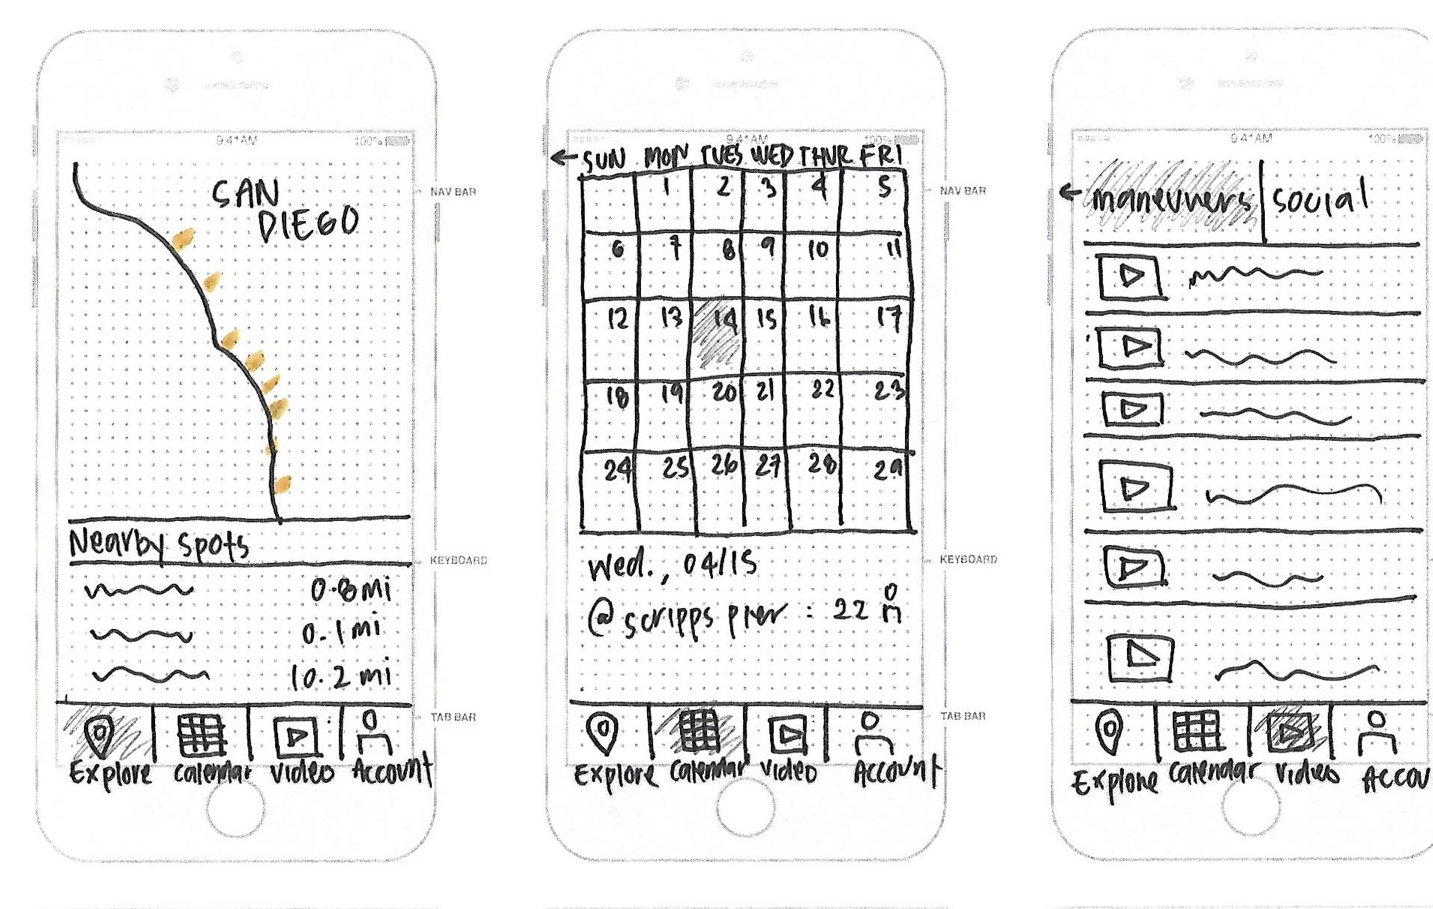 9:41AM 100%
SAN
DIEGO
NAV BAR
Nearby spots
KEYBOARD
0.8mi
0.1mi
10.2mi
TAB BAR
Explore calendar video Account
9:41AM 100%
← SUN MON TUES WED THUR FRI
1 2 3 4 5
6 7 8 9 10 11
12 13 14 15 16 17
18 19 20 21 22 23
24 25 26 27 28 29
NAV BAR
KEYBOARD
Wed., 04/15
@ scripps pier : 22
TAB BAR
Explore calendar video Account
9:41AM 100%
← maneuvers | social
Explore calendar video Accou